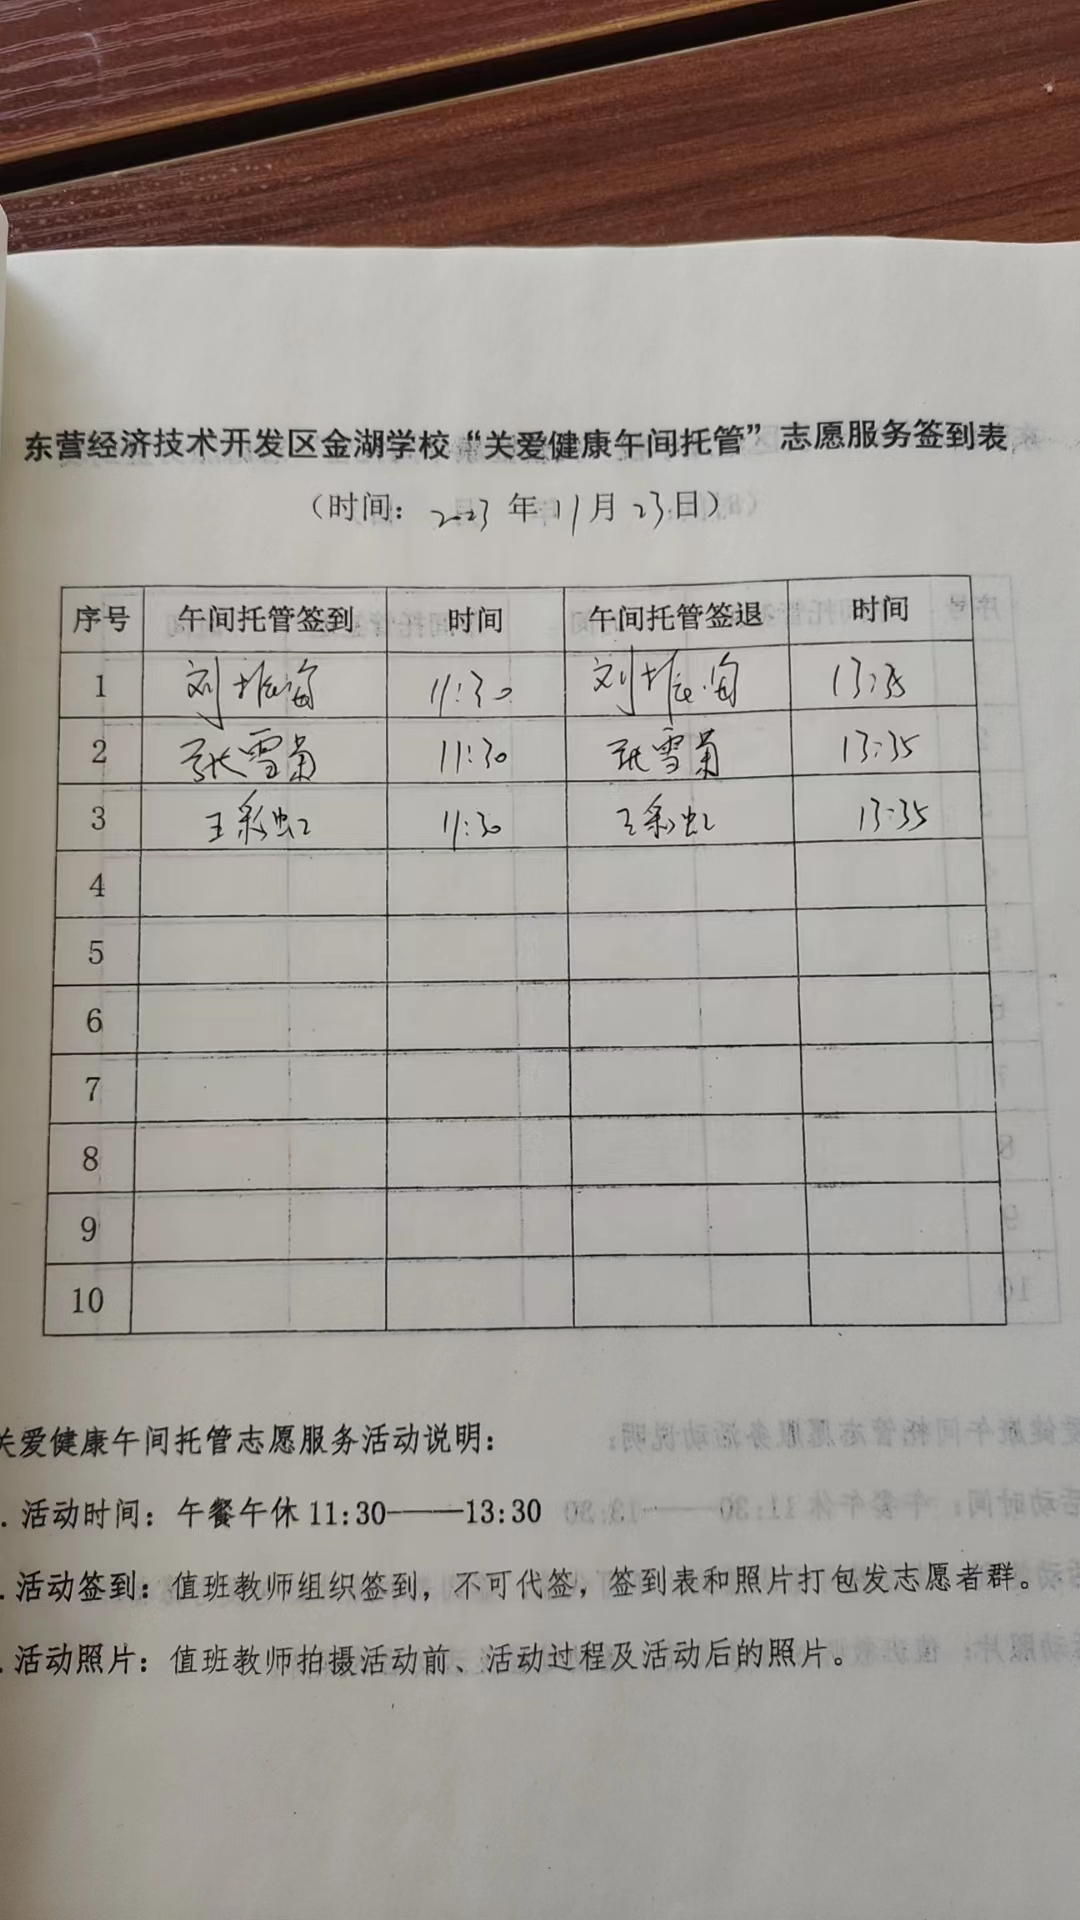 东营经济技术开发区金湖学校“关爱健康午间托管”志愿服务签到表
（时间：2023年11月23日）
序号 午间托管签到 时间 午间托管签退 时间
1 刘 11:30 刘 13:35
2 张雪菊 11:30 张雪菊 13:35
3 王彩虹 11:30 王彩虹 13:35
4
5
6
7
8
9
10
关爱健康午间托管志愿服务活动说明：
.活动时间：午餐午休11:30——13:30
.活动签到：值班教师组织签到，不可代签，签到表和照片打包发志愿者群。
.活动照片：值班教师拍摄活动前、活动过程及活动后的照片。